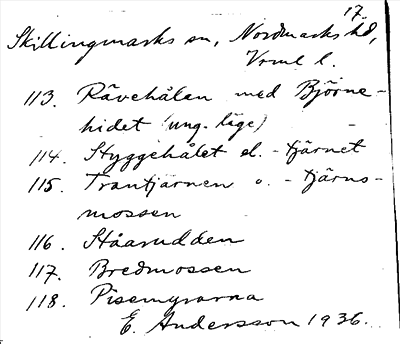 17.
Skillingmarks sn, Nordmarks hd,
Vrml l.
113. Rävehålan med Björne-
hidet (ung. läge)
114. Styggehålet el. - tjärnet
115. Trantjärnen o. - tjärns-
mossen
116. Ståarudden
117. Bredmossen
118. Pisemyrarna
E. Andersson 1936.